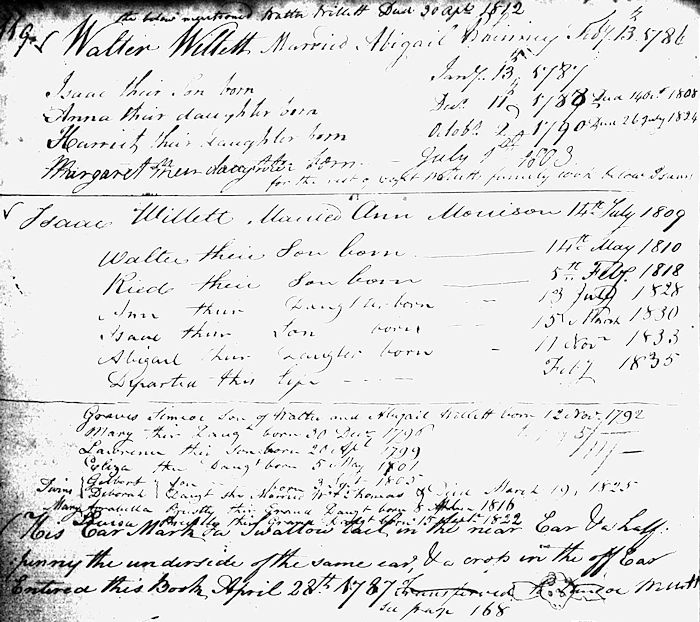 the below mentioned Walter Willett Died 30 Apl 1812
119
Walter Willett Married Abigail Feby 13th 1786
Isaac their Son born Jany. 13th 1787
Anna their daughter born Decr. 11th 1788 Died 14 Octr 1808
Harriet their daughter born Octobr. 2d 1790 Died 26 July 1834
Margaret their daughter born — July 1st 1803
for the rest of Walter Willett's family look below Isaac
Isaac Willett Married Ann Morrison 14th July 1809
Walter their Son born 14th May 1810
Ried their Son born 5th Feby. 1818
Ann their Daughter born 13 July 1828
Isaac their Son born 15 March 1830
Abigail their Daughter born - 11 Novr 1833
Departed this life - - - Feby 1835
Graves Simcoe Son of Walter and Abigail Willett born 12 Novr. 1792
Mary their Daugt born 30 Decr 1796
Lawrence their Son born 20 Apl 1799
Eliza their Daugt born 5 May 1801
Twins { Gilbert Son born 3 Sept 1805
Deborah Daugt she Married Wm. Thomas & Died March 19, 1825
Mary Arrabella their Grand Daugt born 8 1816
their Grand Daugt born 15 Sept. 1822
His Ear Mark a Swallow tail in the near Ear & a half
penny the underside of the same ear, & a crop in the off Ear
Entered this Book April 28th 1787 Transferred to Simcoe Willett
see page 168